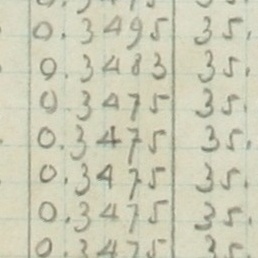 0.3495 35.
0.3483 35.
0.3475 35.
0.3475 35.
0.3475 35.
0.3475 35.
0.3475 35.